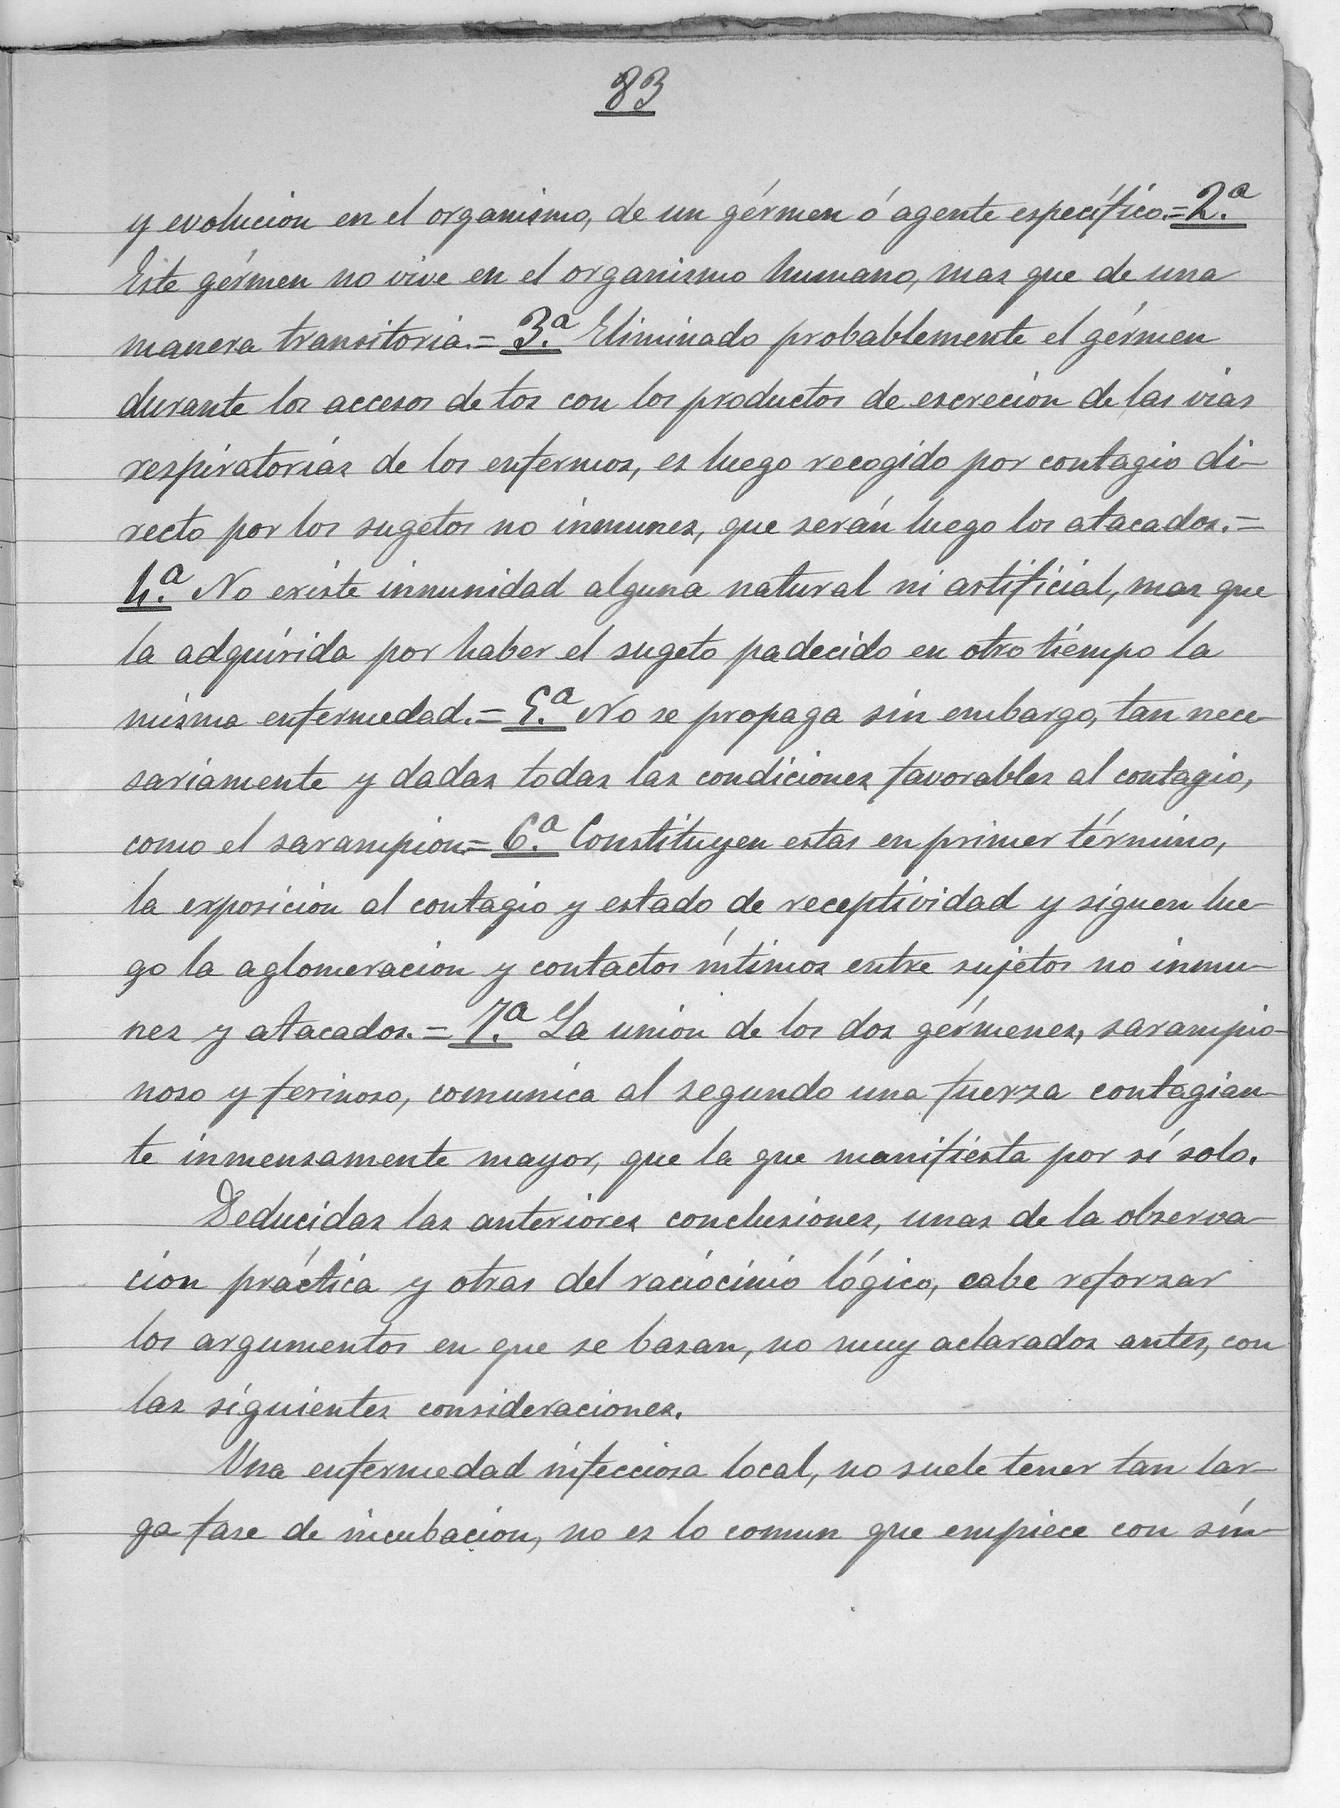 83
y evolucion en el organismo, de un gérmen ó agente específico.=2.ª
Este gérmen no vive en el organismo humano, mas que de una
manera transitoria.= 3.ª Eliminado probablemente el gérmen
durante los accesos de tos con los productos de escrecion de las vias
respiratorias de los enfermos, es luego recogido por contagio di-
recto por los sugetos no inmunes, que serán luego los atacados.=
4.ª No existe inmunidad alguna natural ni artificial, mas que
la adquirida por haber el sugeto padecido en otro tiempo la
misma enfermedad.= 5.ª No se propaga sin embargo, tan nece-
sariamente y dadas todas las condiciones favorables al contagio,
como el sarampion.= 6.ª Constituyen estas en primer término,
la exposicion al contagio y estado de receptividad y siguen lue-
go la aglomeracion y contactos íntimos entre sujetos no inmu-
nes y atacados.= 7.ª La union de los dos gérmenes, sarampio-
noso y ferinoso, comunica al segundo una fuerza contagian-
te inmensamente mayor, que la que manifiesta por sí solo.
Deducidas las anteriores conclusiones, unas de la observa-
cion práctica y otras del raciocinio lógico, cabe reforzar
los argumentos en que se basan, no muy aclarados antes, con
las siguientes consideraciones.
Una enfermedad infecciosa local, no suele tener tan lar-
ga fase de incubacion, no es lo comun que empiece con sín-